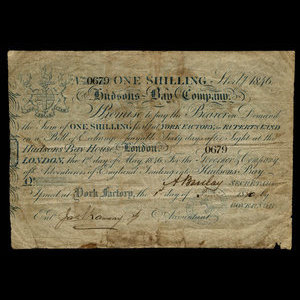 No 0679 ONE SHILLING Sterlg 1846
Hudsons Bay Company.
Promise to pay the Bearer on Demand
the Sum of ONE SHILLING Sterlg at YORK FACTORY in RUPERTS LAND
in a Bill of Exchange payable Sixty days after Sight at the
HUDSONS BAY HOUSE London. 0679
LONDON, the 1st day of May 1846 For the Governor & Company
of Adventurers of England trading into Hudsons Bay
A Barclay SECRETARY
Issued at York Factory, the day of
Entd Accountant